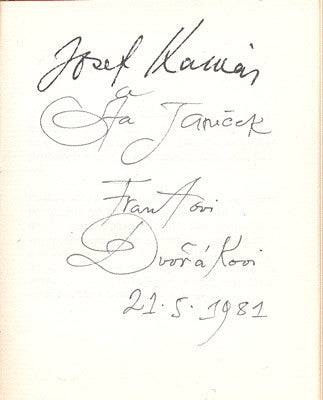 Josef Kamár
a
Ota Janeček
Frantovi
Dvořákovi
21.5.1981